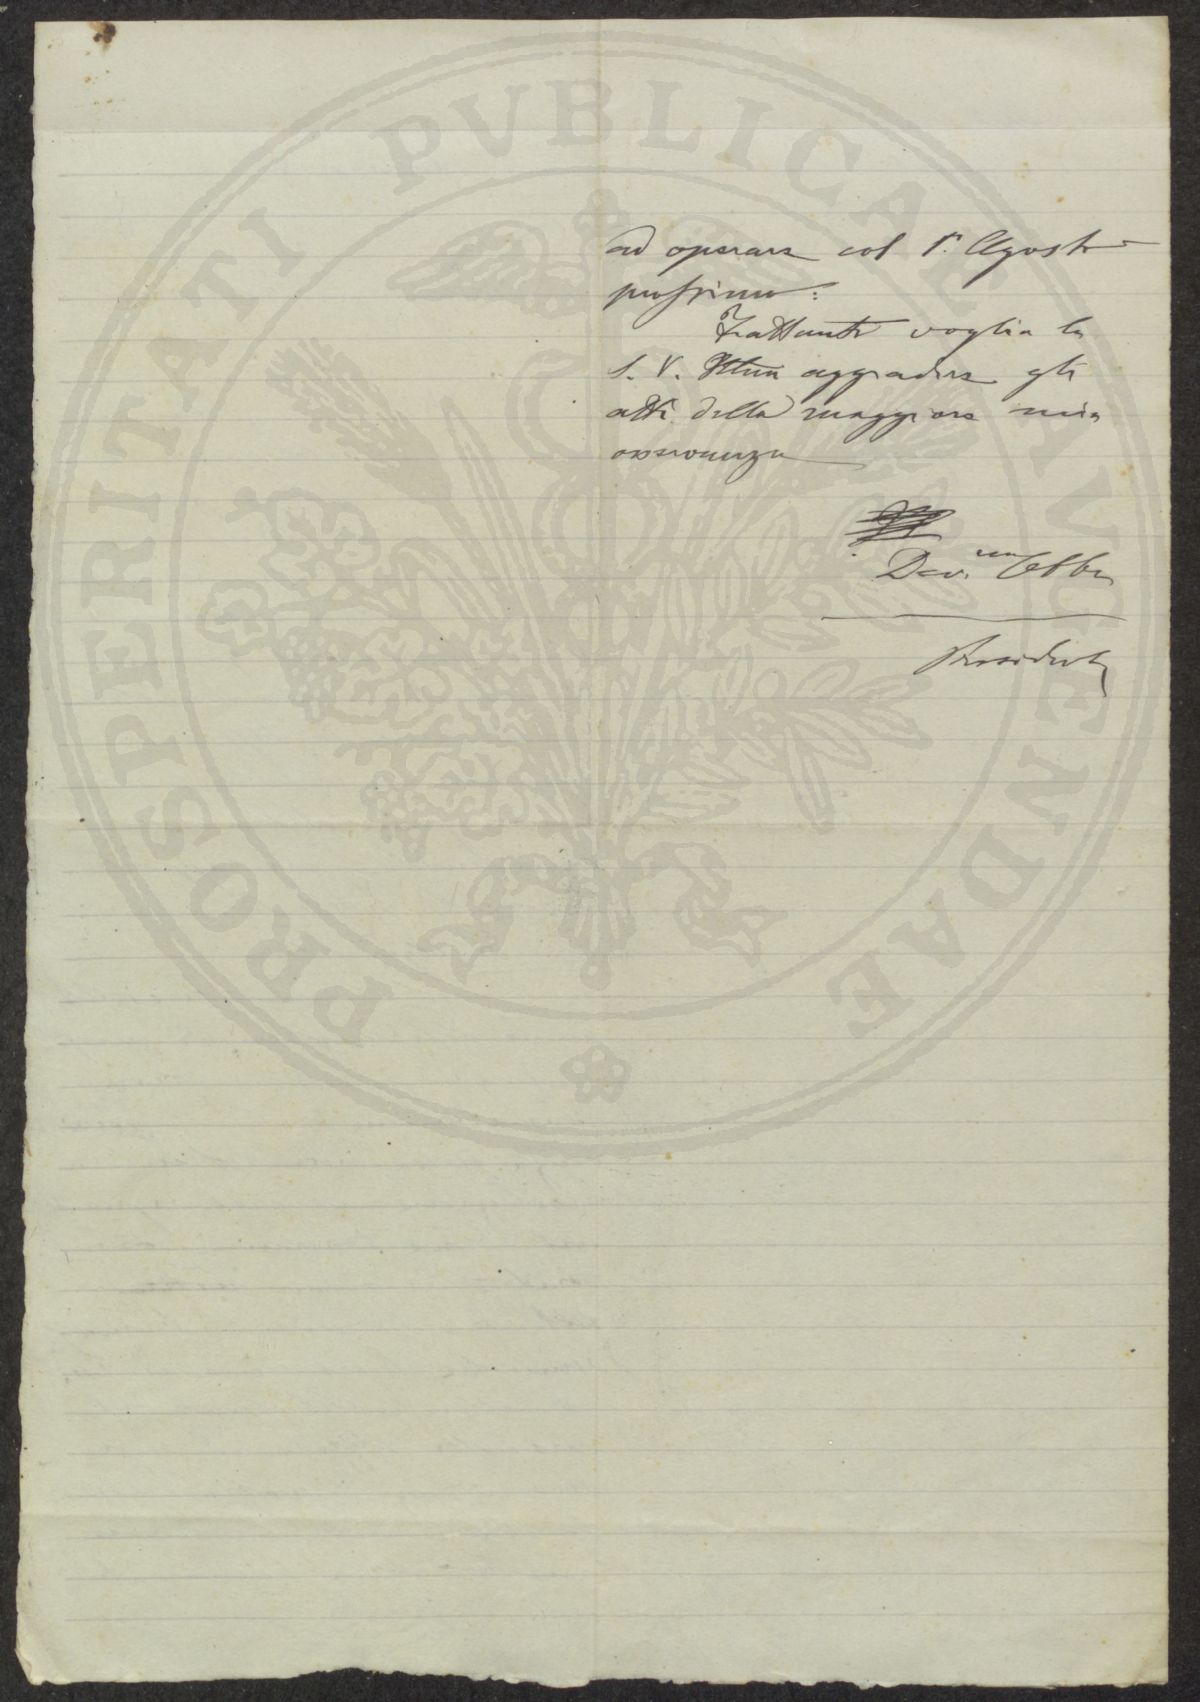 ad operare col 1º Agosto
prossimo:
Frattanto voglia la
S. V. Illma aggradire gli
atti della maggiore mia
osservanza
Dev.mo Obb.
Presidente
PROSPERITATI PVBLICAE AVGENDAE